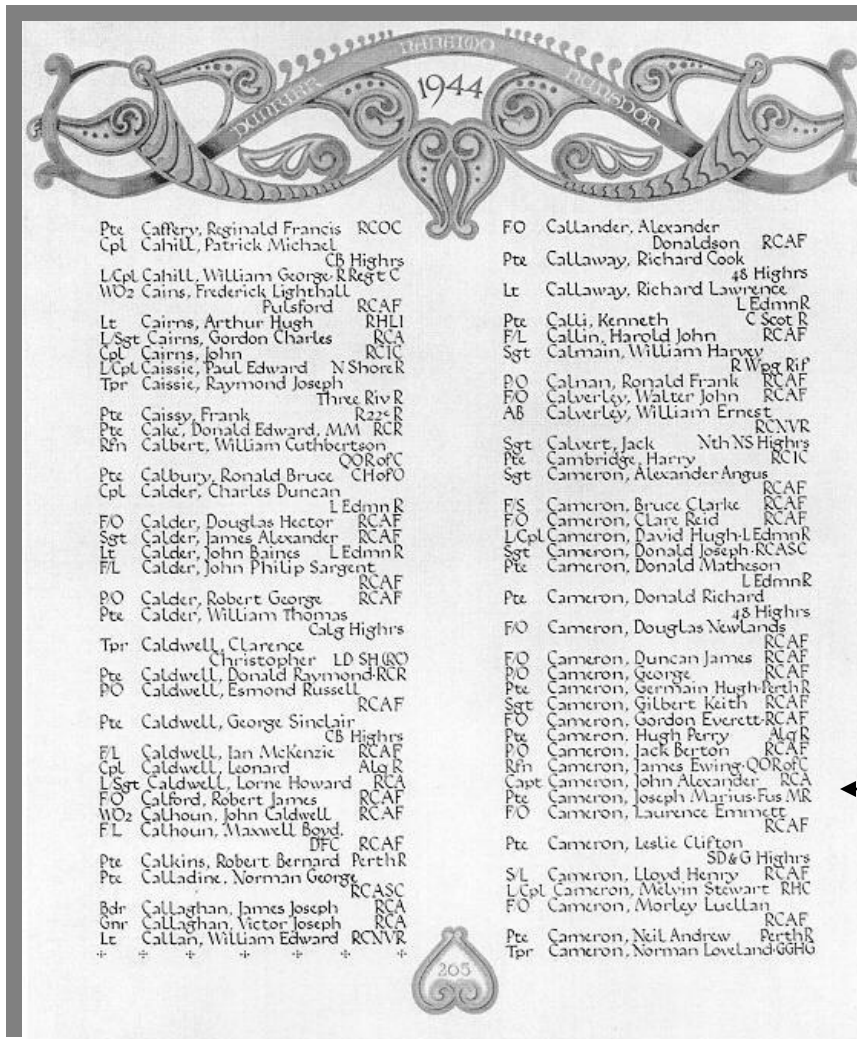 DUNKIRK NANAIMO HUNSDON
1944
Pte Caffery, Reginald Francis RCOC
Cpl Cahill, Patrick Michael
CB Highrs
L/Cpl Cahill, William George·R Regt C
WO2 Cains, Frederick Lighthall
Pulsford RCAF
Lt Cairns, Arthur Hugh RHLI
L/Sgt Cairns, Gordon Charles RCA
Cpl Cairns, John RCIC
L/Cpl Caissie, Paul Edward N Shore R
Tpr Caissie, Raymond Joseph
Three Riv R
Pte Caissy, Frank R22eR
Pte Cake, Donald Edward, MM RCR
Rfn Calbert, William Cuthbertson
QOR of C
Pte Calbury, Ronald Bruce CH of O
Cpl Calder, Charles Duncan
L Edmn R
F/O Calder, Douglas Hector RCAF
Sgt Calder, James Alexander RCAF
Lt Calder, John Baines L Edmn R
F/L Calder, John Philip Sargent
RCAF
P/O Calder, Robert George RCAF
Pte Calder, William Thomas
Calg Highrs
Tpr Caldwell, Clarence
Christopher LD SH (RC)
Pte Caldwell, Donald Raymond·RCR
P/O Caldwell, Esmond Russell
RCAF
Pte Caldwell, George Sinclair
CB Highrs
F/L Caldwell, Ian McKenzie RCAF
Cpl Caldwell, Leonard Alq R
L/Sgt Caldwell, Lorne Howard RCA
F/O Calford, Robert James RCAF
WO2 Calhoun, John Caldwell RCAF
F/L Calhoun, Maxwell Boyd,
DFC RCAF
Pte Calkins, Robert Bernard Perth R
Pte Calladine, Norman George
RCASC
Bdr Callaghan, James Joseph RCA
Gnr Callaghan, Victor Joseph RCA
Lt Callan, William Edward RCNVR
F/O Callander, Alexander
Donaldson RCAF
Pte Callaway, Richard Cook
48 Highrs
Lt Callaway, Richard Lawrence
L Edmn R
Pte Calli, Kenneth C Scot R
F/L Callin, Harold John RCAF
Sgt Calmain, William Harvey
R Wpg Rif
P/O Calnan, Ronald Frank RCAF
F/O Calverley, Walter John RCAF
AB Calverley, William Ernest
RCNVR
Sgt Calvert, Jack Nth NS Highrs
Pte Cambridge, Harry RCIC
Sgt Cameron, Alexander Angus
RCAF
F/S Cameron, Bruce Clarke RCAF
F/O Cameron, Clare Reid RCAF
L/Cpl Cameron, David Hugh·L Edmn R
Sgt Cameron, Donald Joseph·RCASC
Pte Cameron, Donald Matheson
L Edmn R
Pte Cameron, Donald Richard
48 Highrs
F/O Cameron, Douglas Newlands
RCAF
F/O Cameron, Duncan James RCAF
P/O Cameron, George RCAF
Pte Cameron, Germain Hugh·Perth R
Sgt Cameron, Gilbert Keith RCAF
F/O Cameron, Gordon Everett·RCAF
Pte Cameron, Hugh Perry Alq R
P/O Cameron, Jack Berton RCAF
Rfn Cameron, James Ewing·QOR of C
Capt Cameron, John Alexander RCA
Pte Cameron, Joseph Marius·Fus MR
F/O Cameron, Laurence Emmett
RCAF
Pte Cameron, Leslie Clifton
SD&G Highrs
S/L Cameron, Lloyd Henry RCAF
L/Cpl Cameron, Melvin Stewart RHC
F/O Cameron, Morley Luellan
RCAF
Pte Cameron, Neil Andrew Perth R
Tpr Cameron, Norman Loveland·GGHG
205